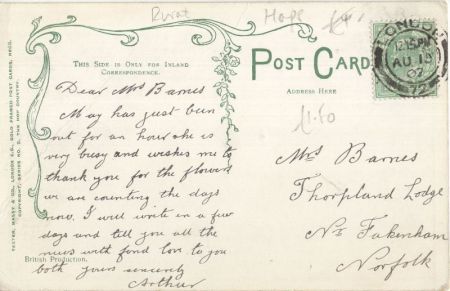 Rural
Hops
POST CARD
THIS SIDE IS ONLY FOR INLAND
CORRESPONDENCE.
ADDRESS HERE
LONDON
12.15PM
AU 10
07
72
£1.50
Dear Mrs Barnes
May has just been
out for an hour she is
very busy and wishes me to
thank you for the flowers
we are counting the days
now. I will write in a few
days and tell you all the
news with fond love to you
both yours sincerely
Arthur
British Production.
Mrs Barnes
Thorpland Lodge
Nr Fakenham
Norfolk
COPYRIGHT, SERIES NO. 2, THE HOP COUNTRY.